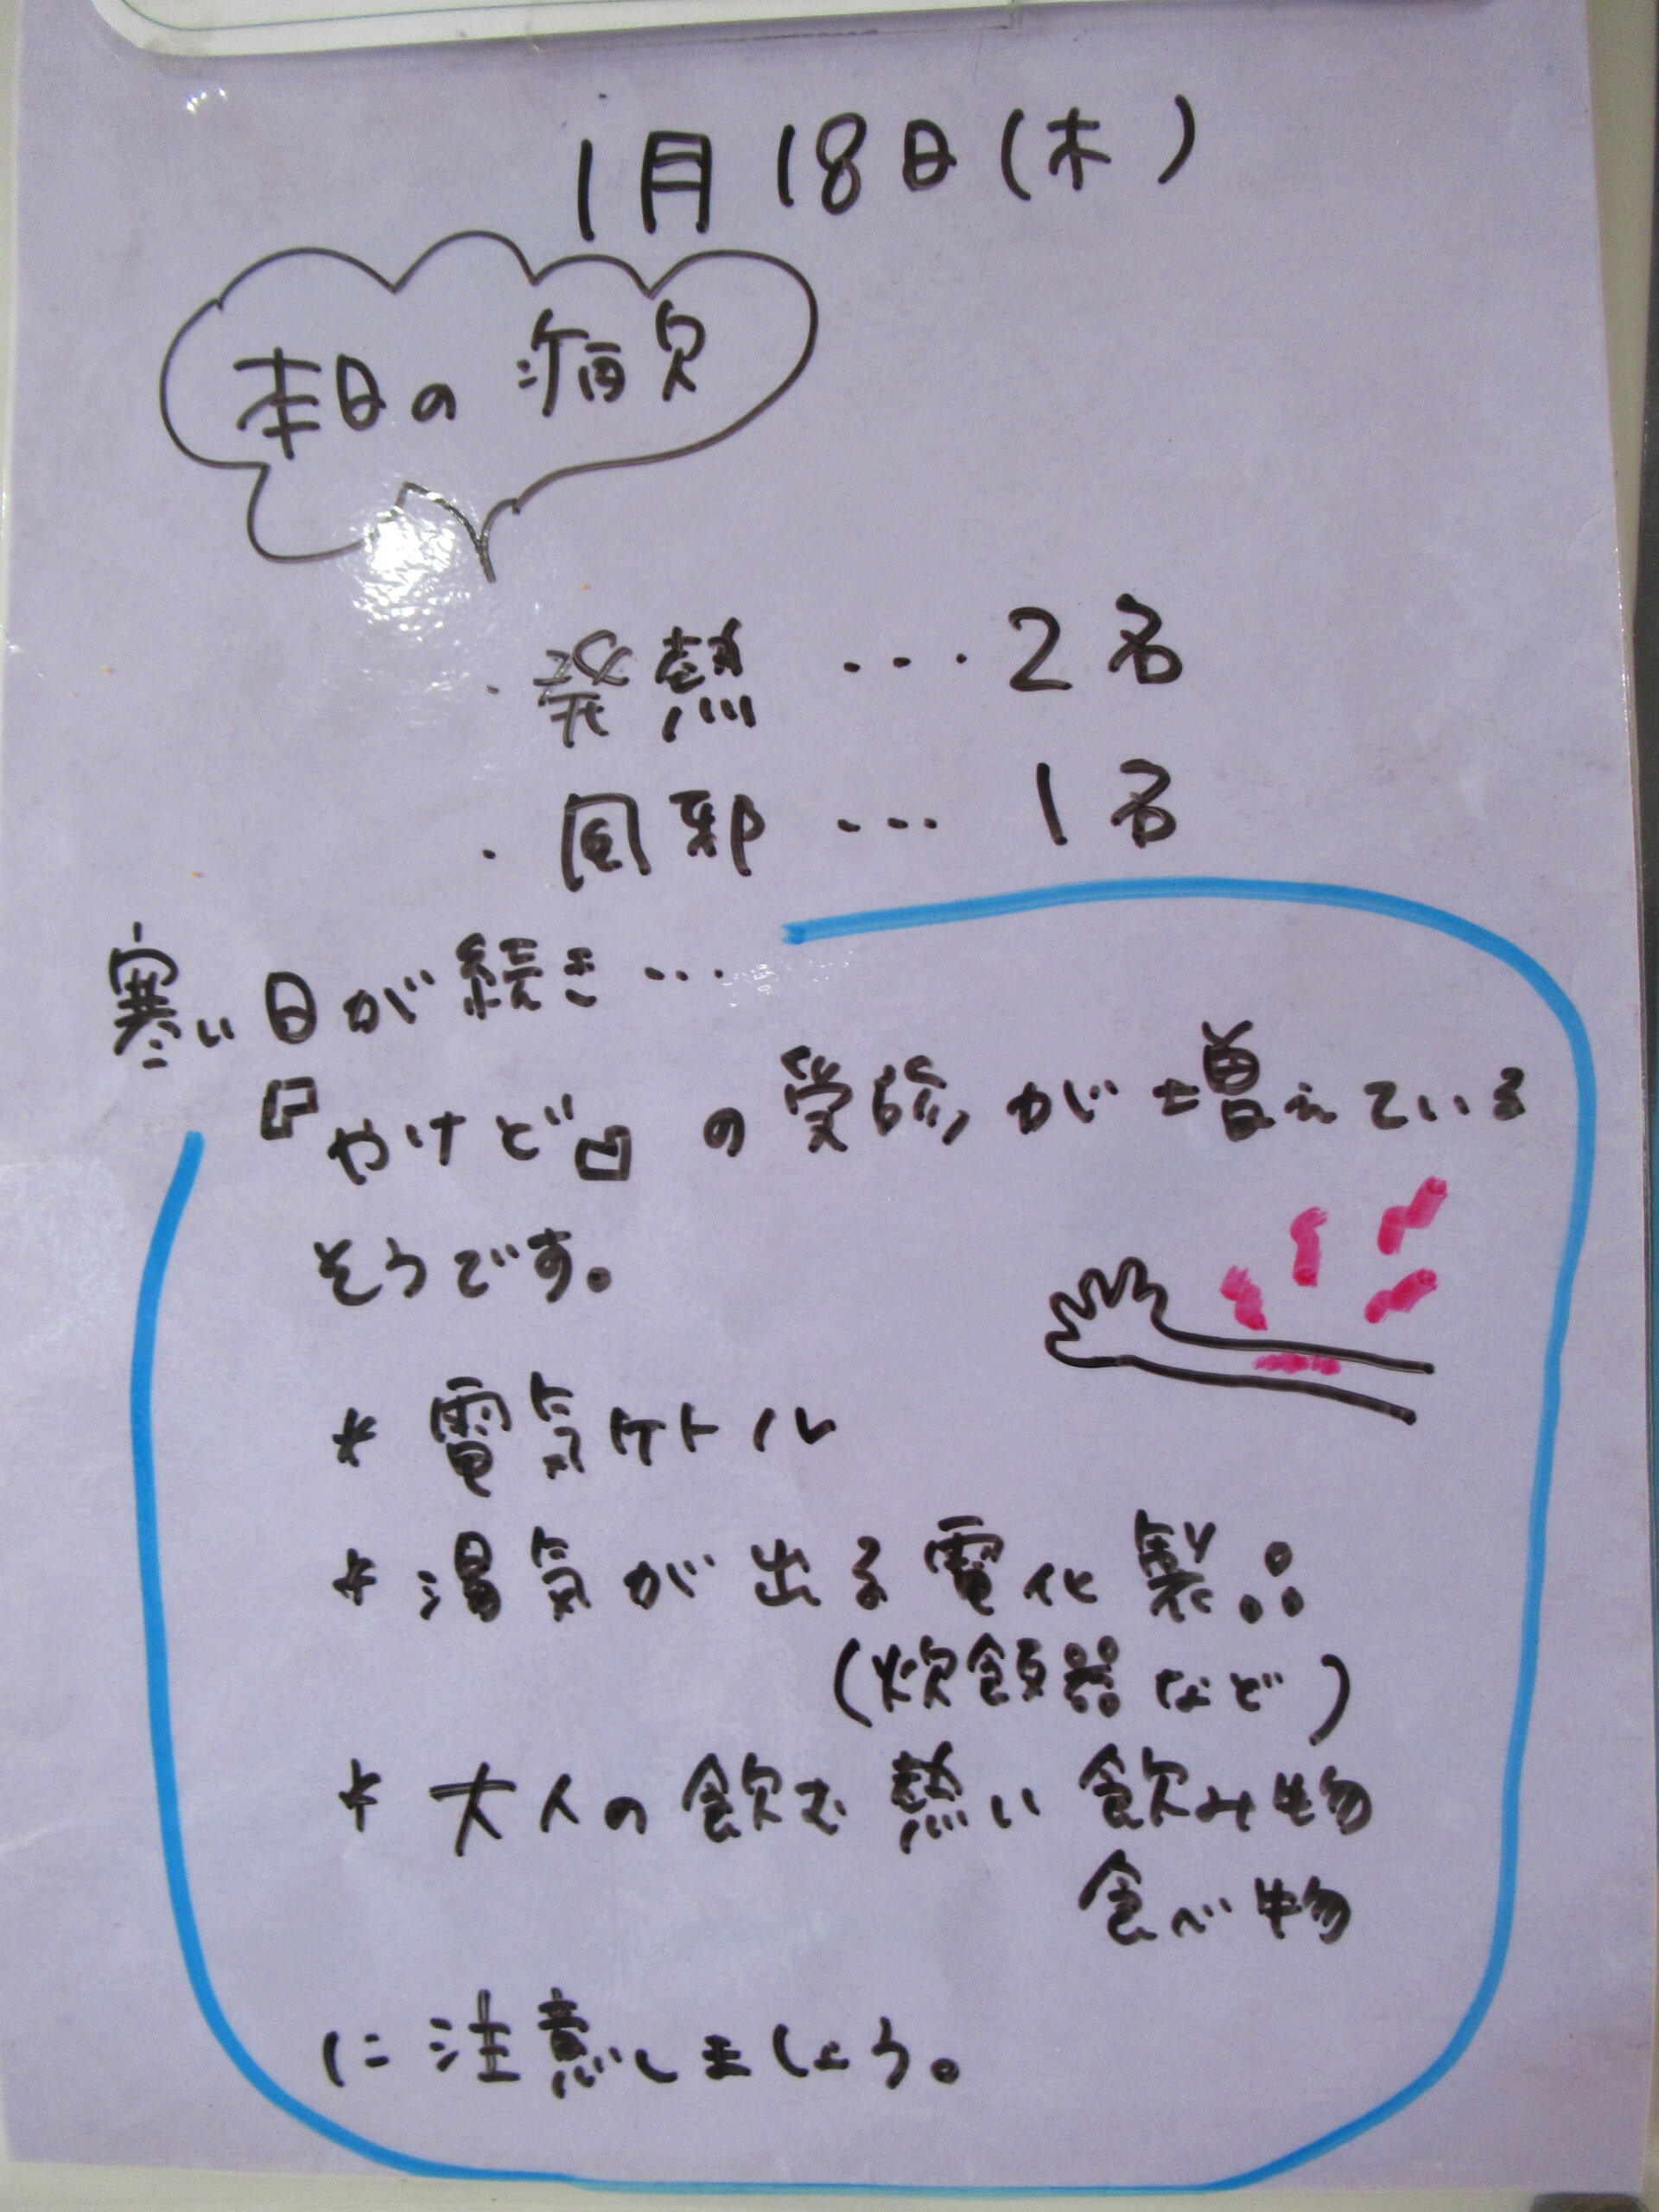 1月18日(木)
本日の病欠
・発熱 … 2名
・風邪 … 1名
寒い日が続き…
『やけど』の受診が増えている
そうです。
* 電気ケトル
* 湯気が出る電化製品
(炊飯器など)
* 大人の飲む熱い飲み物
食べ物
に注意しましょう。